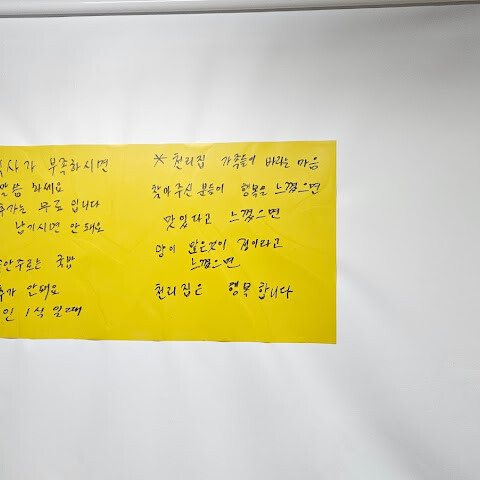 식사가 부족하시면
말씀 하세요
추가는 무료 입니다
남기시면 안돼요
술안주로는 국밥
추가 안돼요
인 1식 일때
※ 천리집 가족들이 바라는 마음
찾아주신 분들이 행복을 느꼈으면
맛있다고 느꼈으면
많이 앉은것이 정이라고
느꼈으면
천리집은 행복합니다